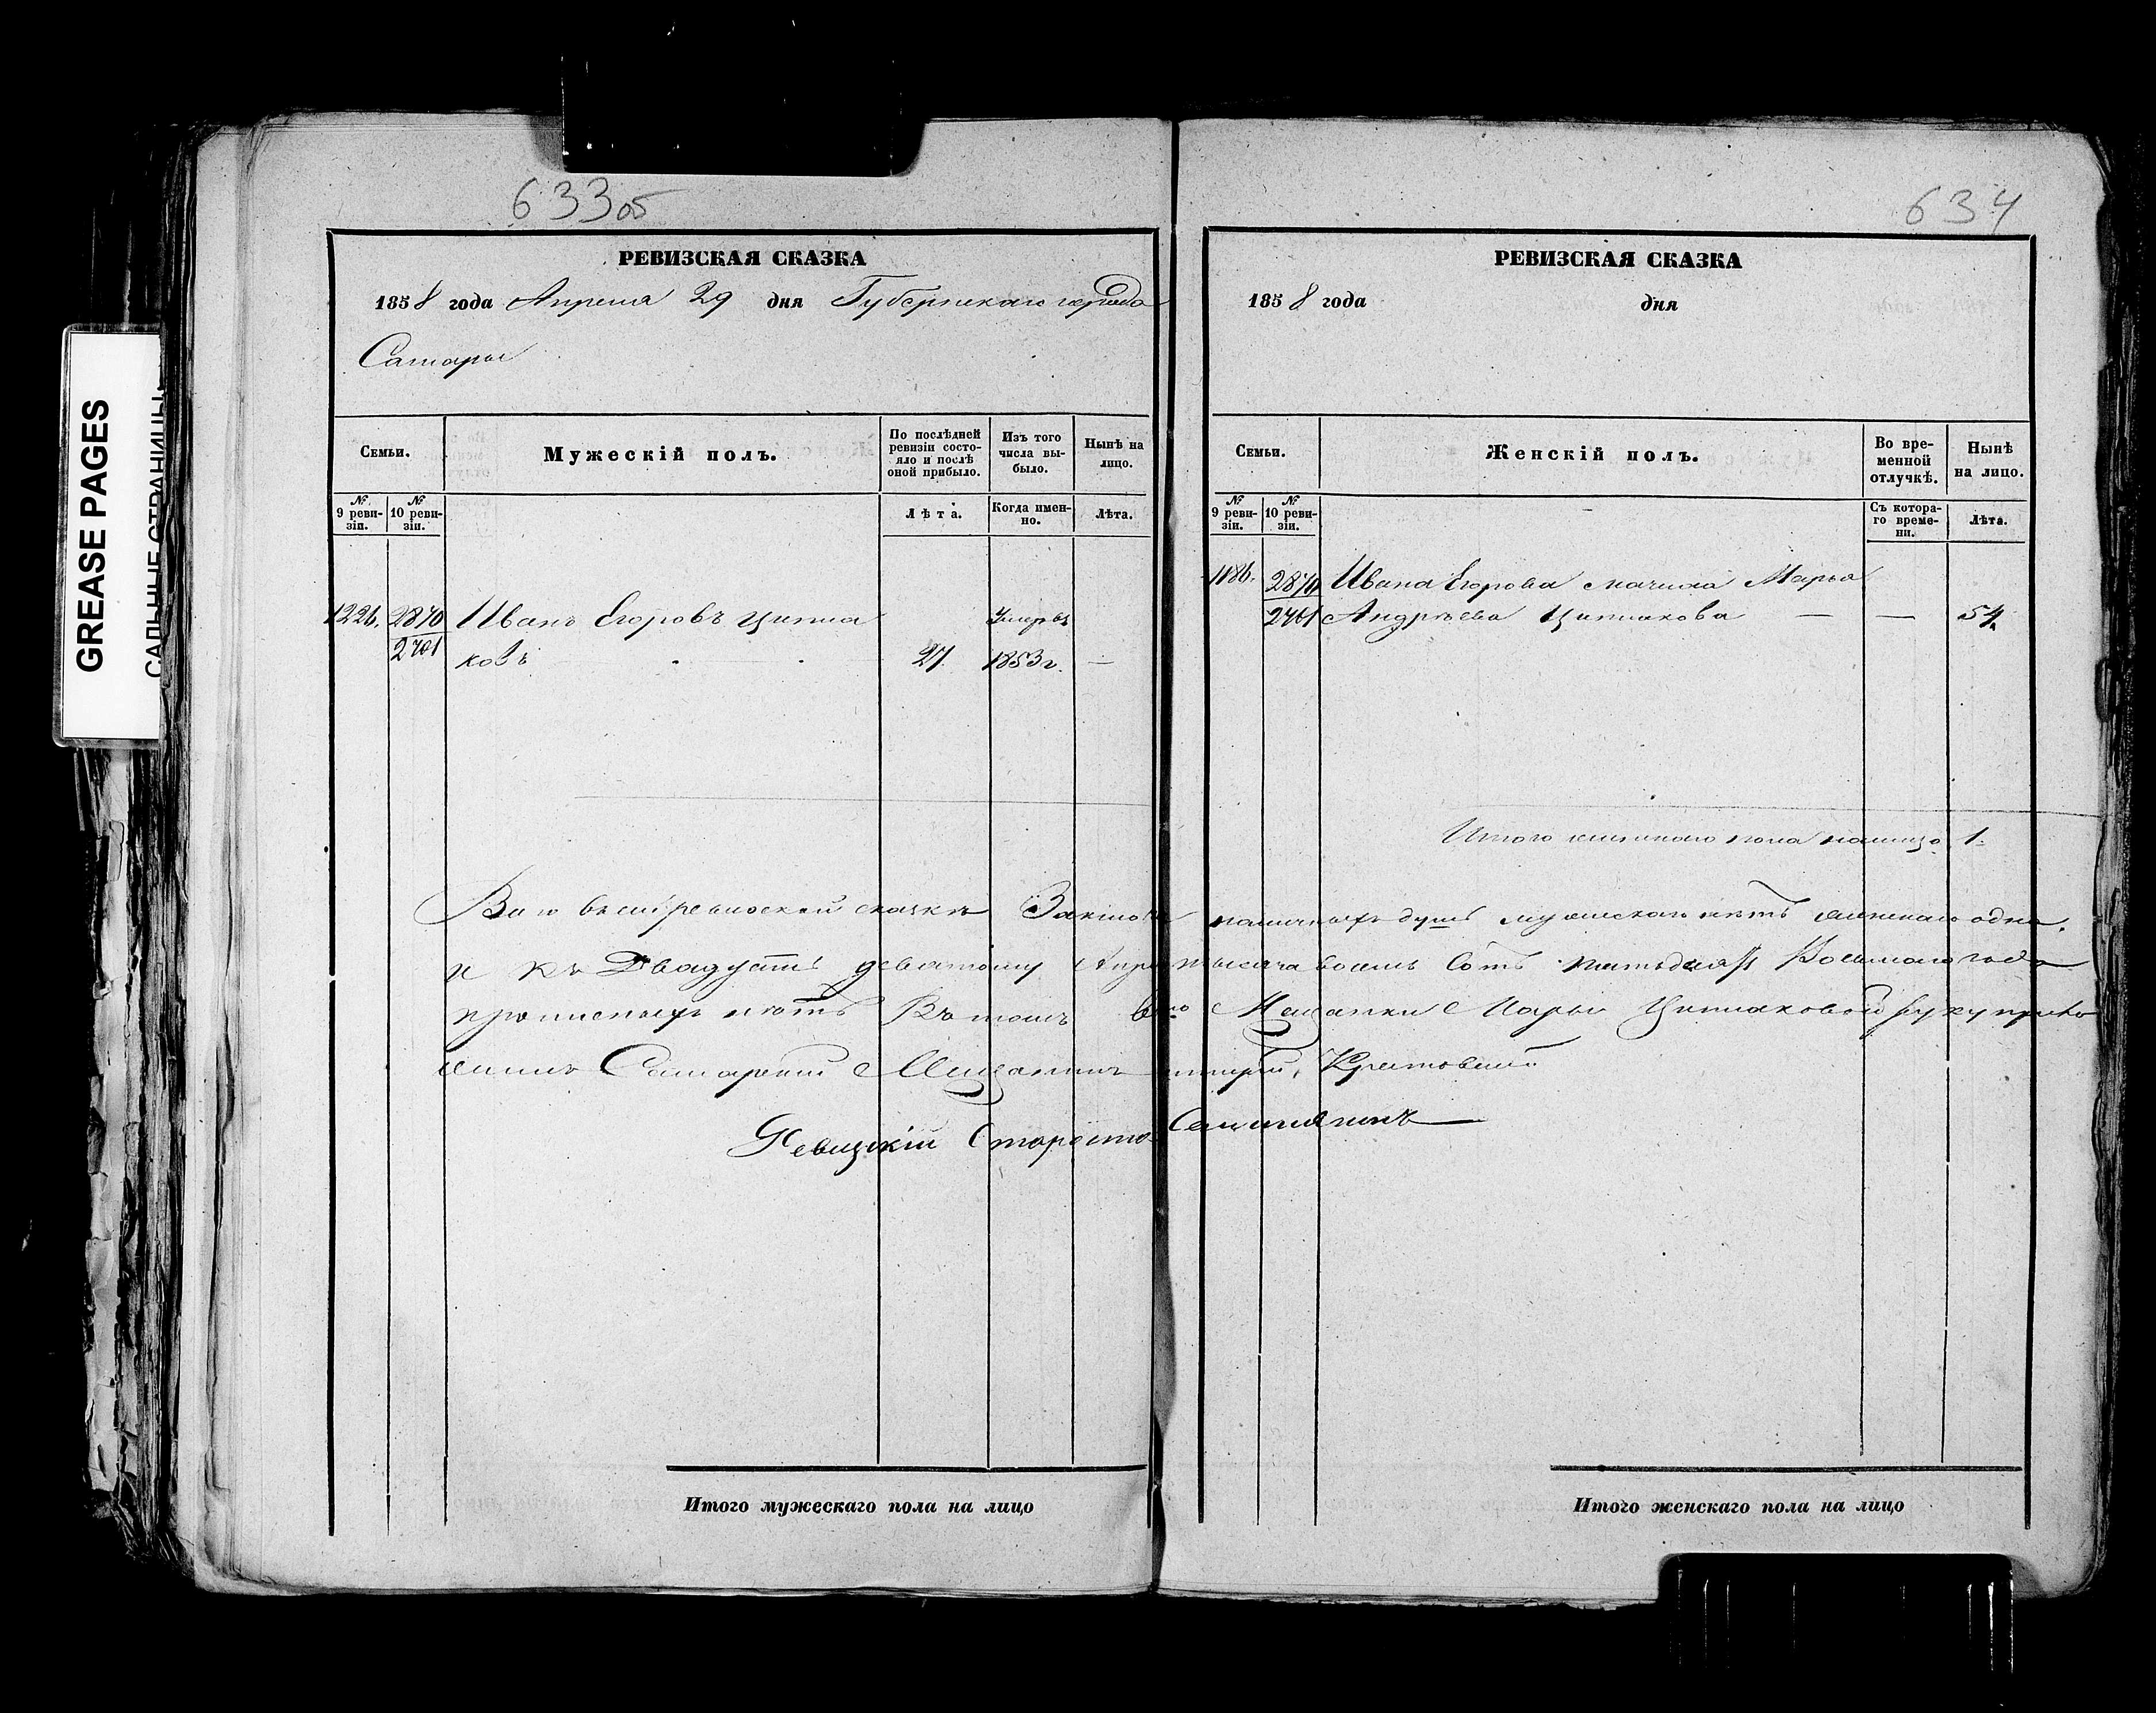 GREASE PAGES
САЛЬНЫЕ СТРАНИЦЫ
633об
РЕВИЗСКАЯ СКАЗКА
1858 года Апреля 29 дня Губернскаго города
Самары
Семьи.
Мужескій полъ.
По послѣдней ревизіи состояло и послѣ оной прибыло.
Изъ того числа выбыло.
Нынѣ на лицо.
№ 9 ревизіи.
№ 10 ревизіи.
Лѣта.
Когда именно.
Лѣта.
1226. 2870 Иванъ Егоровъ Ципла умеръ въ
2701 ковъ 27 1853 г. —
Итого мужескаго пола на лицо
634
РЕВИЗСКАЯ СКАЗКА
1858 года дня
Семьи.
Женскій полъ.
Во временной отлучкѣ.
Нынѣ на лицо.
№ 9 ревизіи.
№ 10 ревизіи.
Съ котораго времени.
Лѣта.
1186. 2870 Ивана Егорова мачиха Марья
2761 Андрѣева Циплакова — — 54.
Итого женскаго пола налицо 1.
ревизской сказкѣ наличныхъ душъ мужескаго нѣтъ женскаго одна.
и къ Двадцать девятому восемь сотъ пятьдесятъ Восьмаго года
прописныхъ нѣтъ Въ томъ Мещанки Марьи Циплаковой руку прило
жилъ Самарскій Мещанинъ
Ревизскій Староста
Итого женскаго пола на лицо